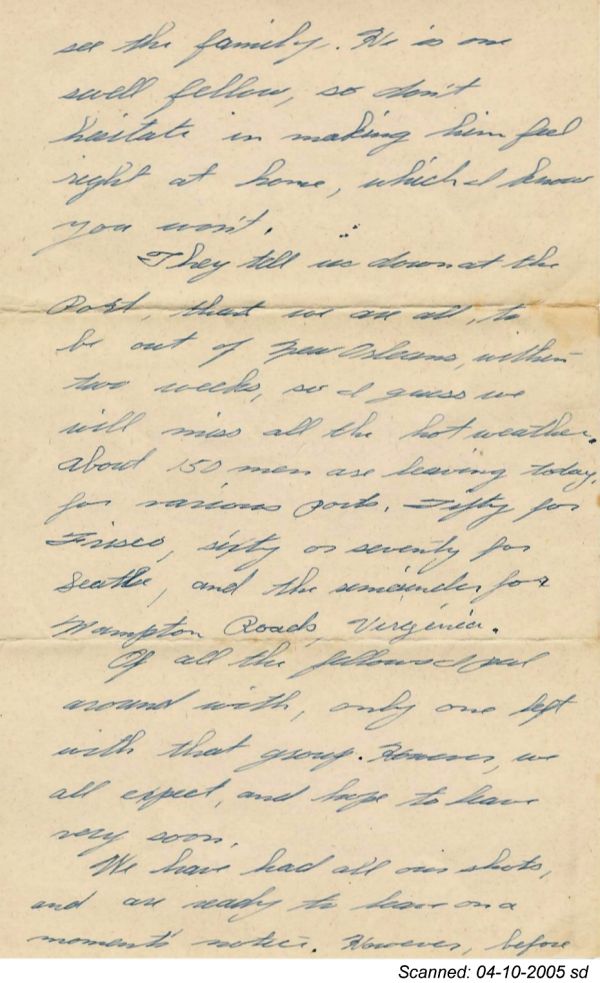 see the family. He is one
swell fellow, so don't
hesitate in making him feel
right at home, which I know
you won't.
They tell us down at the
Port, that we are all, to
be out of New Orleans, within
two weeks, so I guess we
will miss all the hot weather.
About 150 men are leaving today,
for various ports. Fifty for
Frisco, sixty or seventy for
Seattle, and the remainder for
Hampton Roads, Virginia.
Of all the fellows I pal
around with, only one left
with that group. However, we
all expect, and hope to leave
very soon.
We have had all our shots,
and are ready to leave on a
moments notice. However, before
Scanned: 04-10-2005 sd